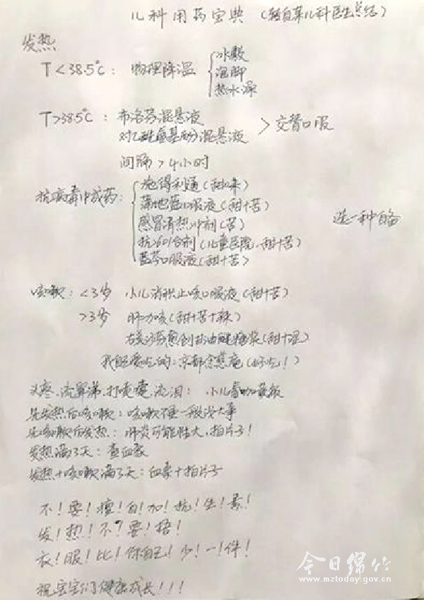 儿科用药宝典（转自某儿科医生总结）
发热
T<38.5℃：物理降温
冰敷
泡脚
热水澡
T>38.5℃：布洛芬混悬液
对乙酰氨基酚混悬液
>交替口服
间隔>4小时
抗病毒中成药：
（甜+苦）
蒲地蓝口服液（甜+苦）
感冒清热冲剂（苦）
抗601合剂（儿童医院，甜+苦）
蓝芩口服液（甜+苦）
选一种自备
咳嗽：<3岁 小儿消积止咳口服液（甜+苦）
>3岁 肺力咳（甜+苦+辣）
右美沙芬愈创甘油醚糖浆
京都念慈庵（好吃！）
头疼、流鼻涕、打喷嚏、流泪：小儿
先发热后咳嗽：咳嗽不重一般没大事
先咳嗽后发热：肺炎可能性大，拍片子！
发热满3天：查血象
发热+咳嗽满3天：血象+拍片子
不！要！擅！自！加！抗！生！素！
发！热！不！要！捂！
衣！服！比！你自己！少！一！件！
祝宝宝们健康成长！！！
今日绵竹
www.mztoday.gov.cn